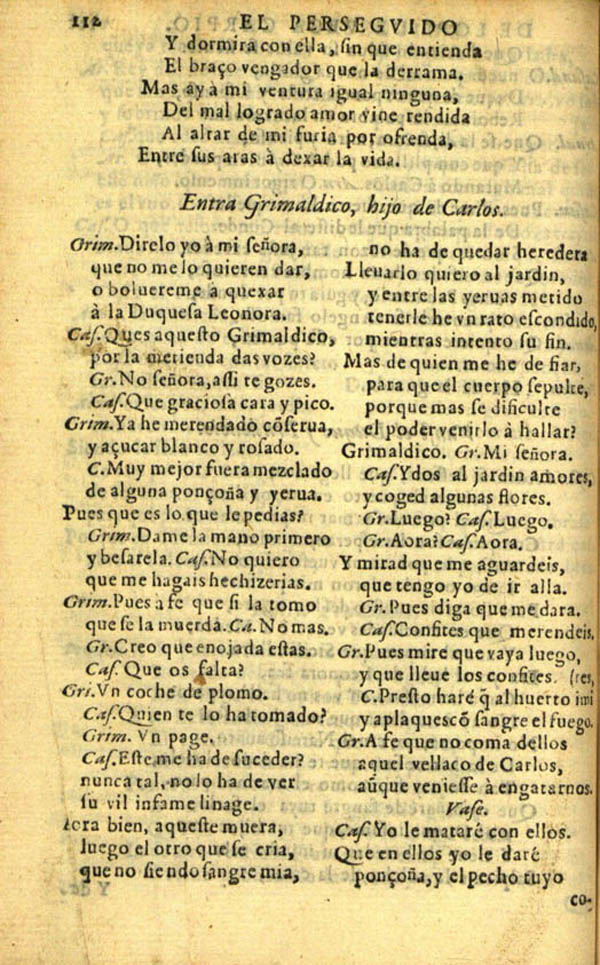 112 EL PERSEGVIDO
Y dormira con ella, sin que entienda
El braço vengador que la derrama.
Mas ay à mi ventura igual ninguna,
Del mal logrado amor vine rendida
Al altar de mi furia por ofrenda,
Entre sus aras à dexar la vida.
Entra Grimaldico, hijo de Carlos.
Grim. Direlo yo à mi señora,
que no me lo quieren dar,
o boluereme à quexar
à la Duquesa Leonora.
Cas. Ques aquesto Grimaldico,
por la merienda das vozes?
Gr. No señora, assi te gozes.
Cas. Que graciosa cara y pico.
Grim. Ya he merendado cõserua,
y açucar blanco y rosado.
C. Muy mejor fuera mezclado
de alguna ponçoña y yerua.
Pues que es lo que le pedias?
Grim. Dame la mano primero
y besarela. Cas. No quiero
que me hagais hechizerias.
Grim. Pues a fe que si la tomo
que se la muerda. Ca. No mas.
Gr. Creo que enojada estas.
Cas. Que os falta?
Gri. Vn coche de plomo.
Cas. Quien te lo ha tomado?
Grim. Vn page.
Cas. Este me ha de suceder?
nunca tal, no lo ha de ver
su vil infame linage.
Aora bien, aqueste muera,
luego el otro que se cria,
que no siendo sangre mia,
no ha de quedar heredera
Lleuarlo quiero al jardin,
y entre las yeruas metido
tenerle he vn rato escondido,
mientras intento su fin.
Mas de quien me he de fiar,
para que el cuerpo sepulte,
porque mas se dificulte
el poder venirlo à hallar?
Grimaldico. Gr. Mi señora.
Cas. Ydos al jardin amores,
y coged algunas flores.
Gr. Luego? Cas. Luego.
Gr. Aora? Cas. Aora.
Y mirad que me aguardeis,
que tengo yo de ir alla.
Gr. Pues diga que me dara.
Cas. Confites que merendeis.
Gr. Pues mire que vaya luego,
y que lleue los confites. (res,
C. Presto haré q̃ al huerto imi
y aplaques cõ sangre el fuego.
Gr. A fe que no coma dellos
aquel vellaco de Carlos,
aũque veniesse à engatarnos.
Vase.
Cas. Yo le mataré con ellos.
Que en ellos yo le daré
ponçoña, y el pecho tuyo
co-